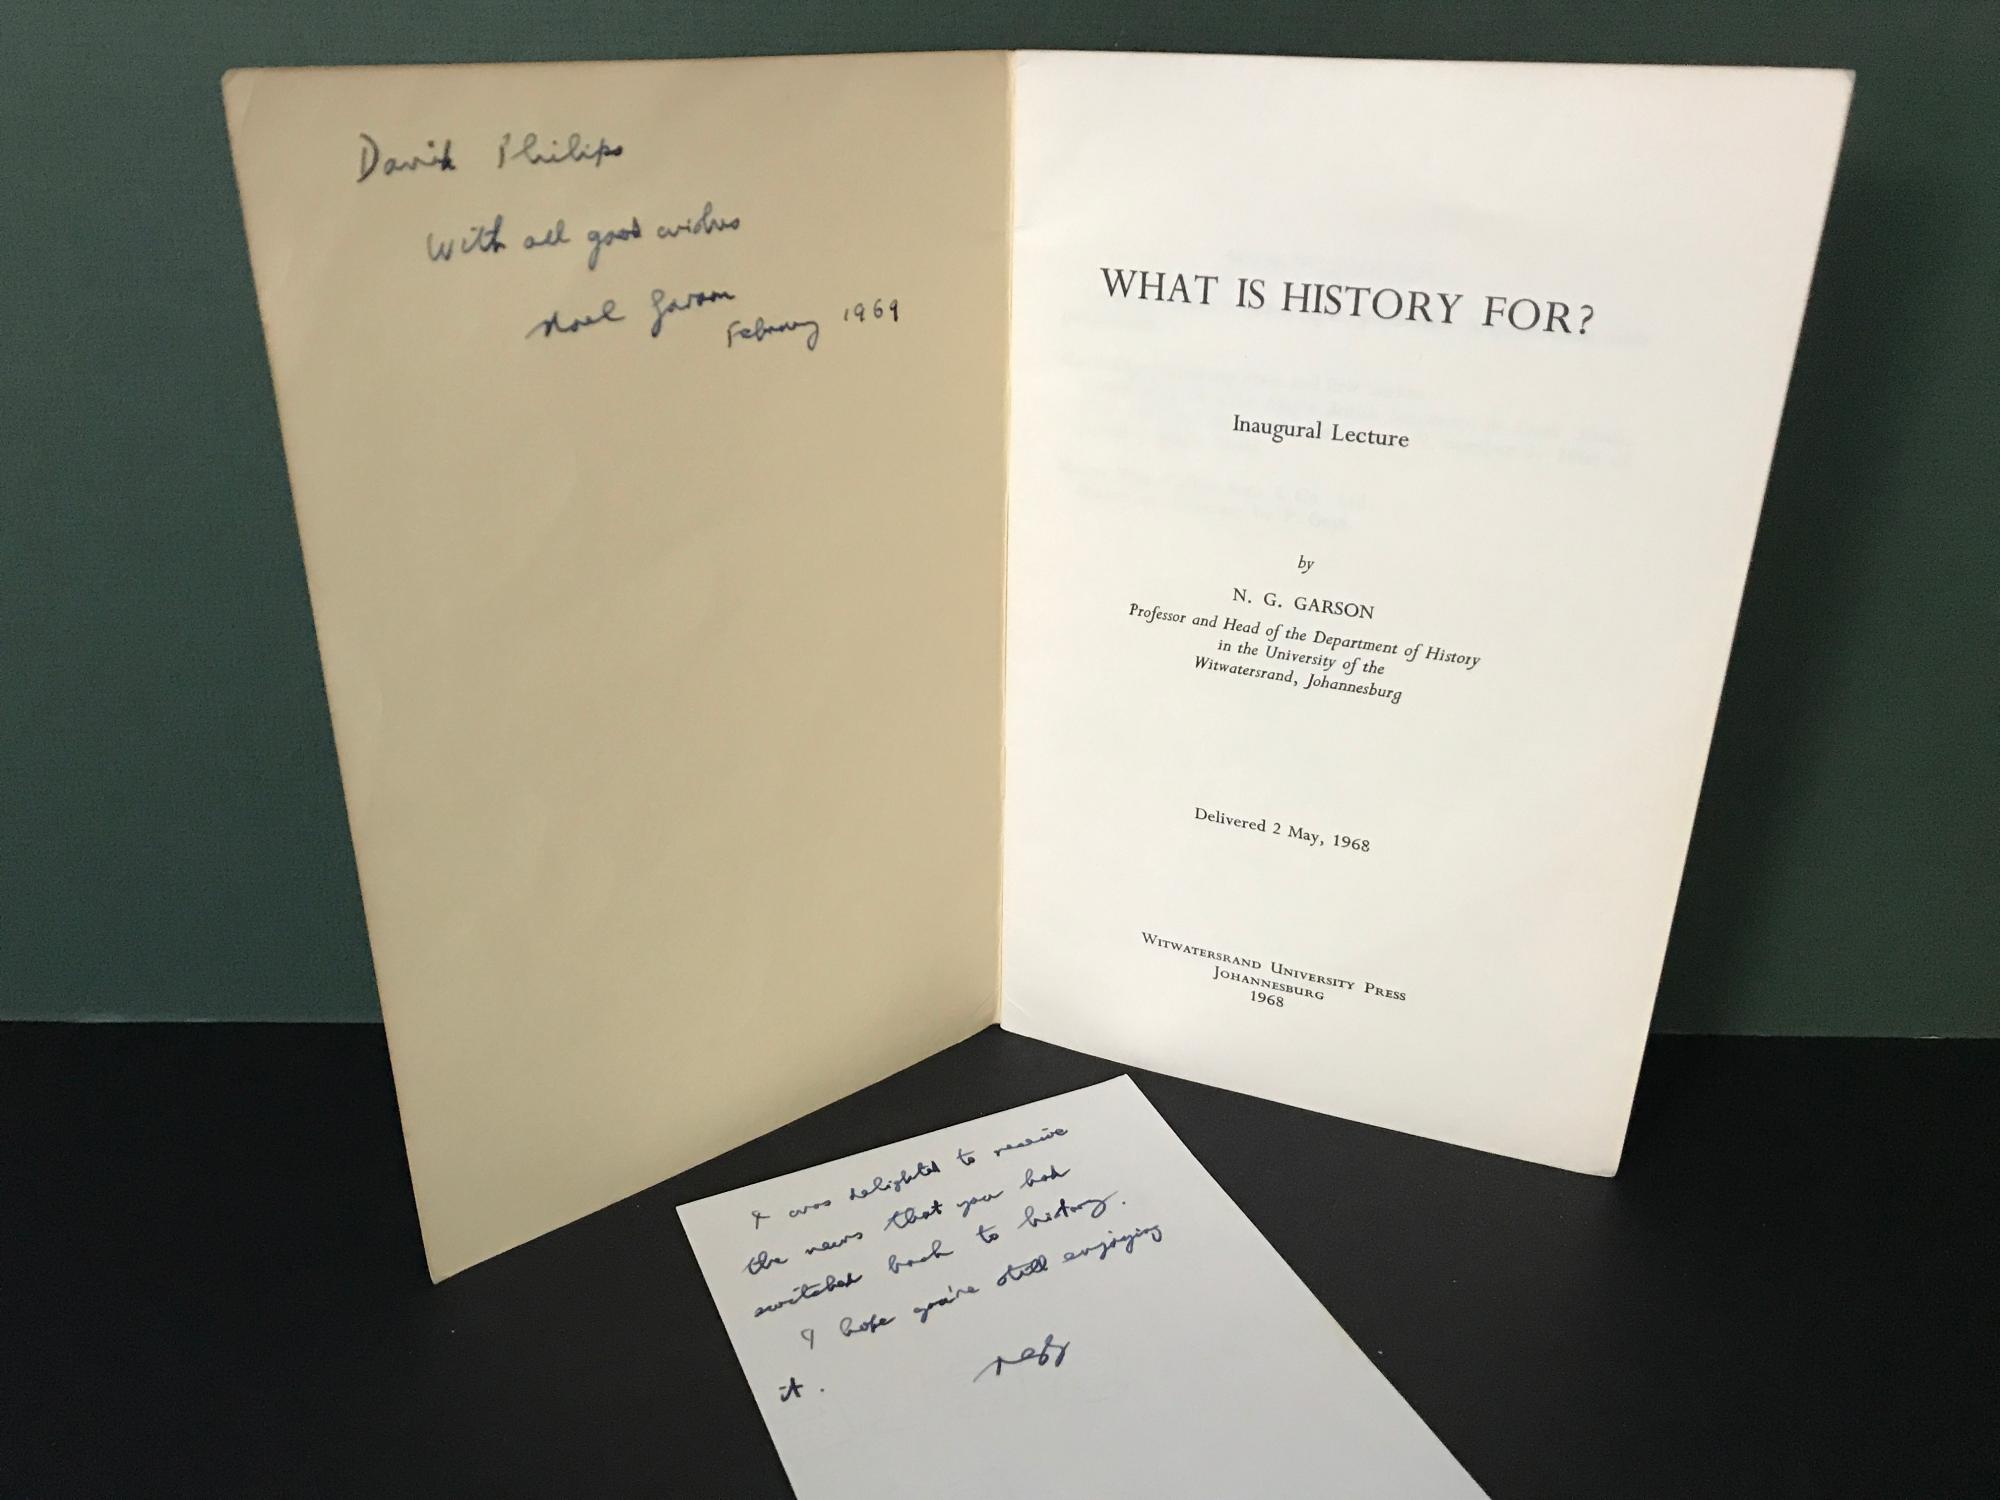 David Philips
With all good wishes
Noel Garson
February 1969
WHAT IS HISTORY FOR?
Inaugural Lecture
by
N. G. GARSON
Professor and Head of the Department of History
in the University of the
Witwatersrand, Johannesburg
Delivered 2 May, 1968
WITWATERSRAND UNIVERSITY PRESS
JOHANNESBURG
1968
I was delighted to receive
the news that you had
switched back to history.
I hope you're still enjoying
it.